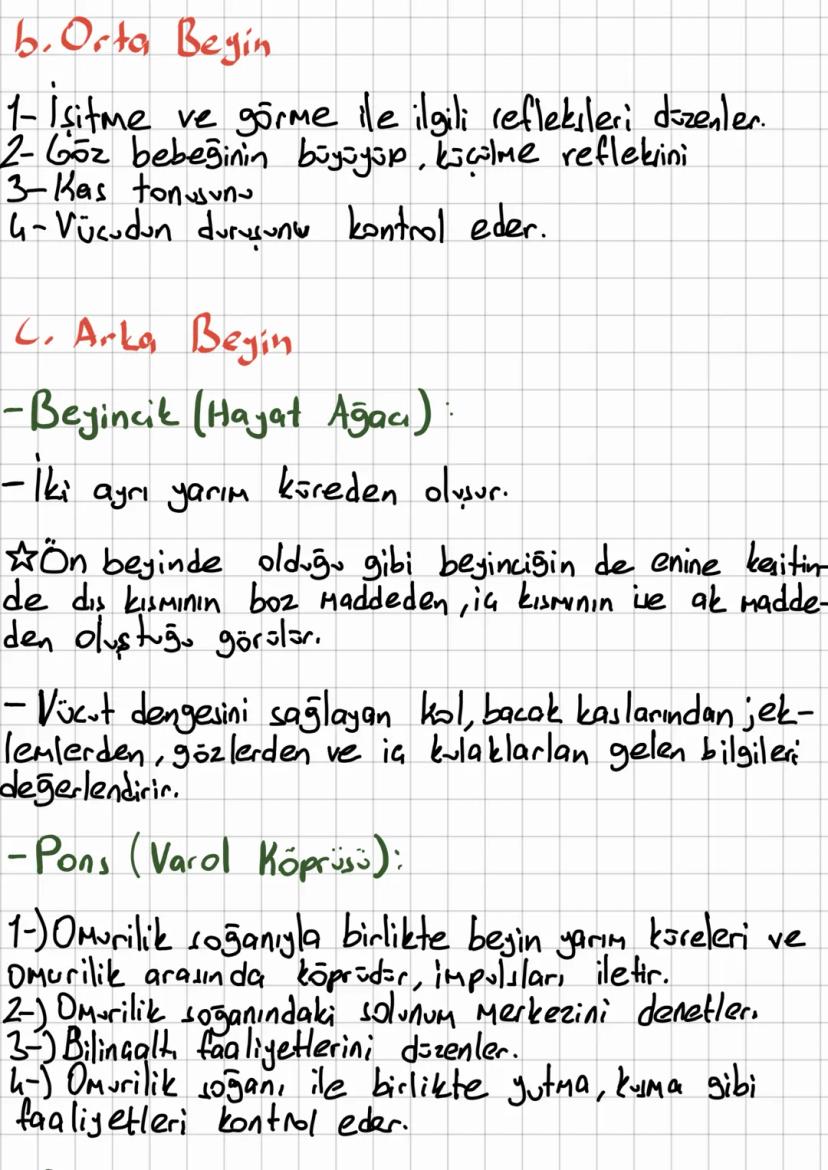 b. Orta Beyin
1- İşitme ve görme ile ilgili refleksleri düzenler.
2- Göz bebeğinin büyüyüp, küçülme refleksini
3- Kas tonusunu
4- Vücudun duruşunu kontrol eder.
C. Arka Beyin
- Beyincik (Hayat Ağacı):
- İki ayrı yarım küreden oluşur.
☆Ön beyinde olduğu gibi beyinciğin de enine kesitin-
de dış kısmının boz maddeden, iç kısmının ise ak madde-
den oluştuğu görülür.
- Vücut dengesini sağlayan kol, bacak kaslarından jek-
lemlerden, gözlerden ve iç kulaklarlan gelen bilgileri
değerlendirir.
- Pons (Varol Köprüsü):
1-) Omurilik soğanıyla birlikte beyin yarım küreleri ve
omurilik arasında köprüdür, impulsları iletir.
2-) Omurilik soğanındaki solunum merkezini denetler.
3-) Bilinçaltı faaliyetlerini düzenler.
4-) Omurilik soğanı ile birlikte yutma, kusma gibi
faaliyetleri kontrol eder.